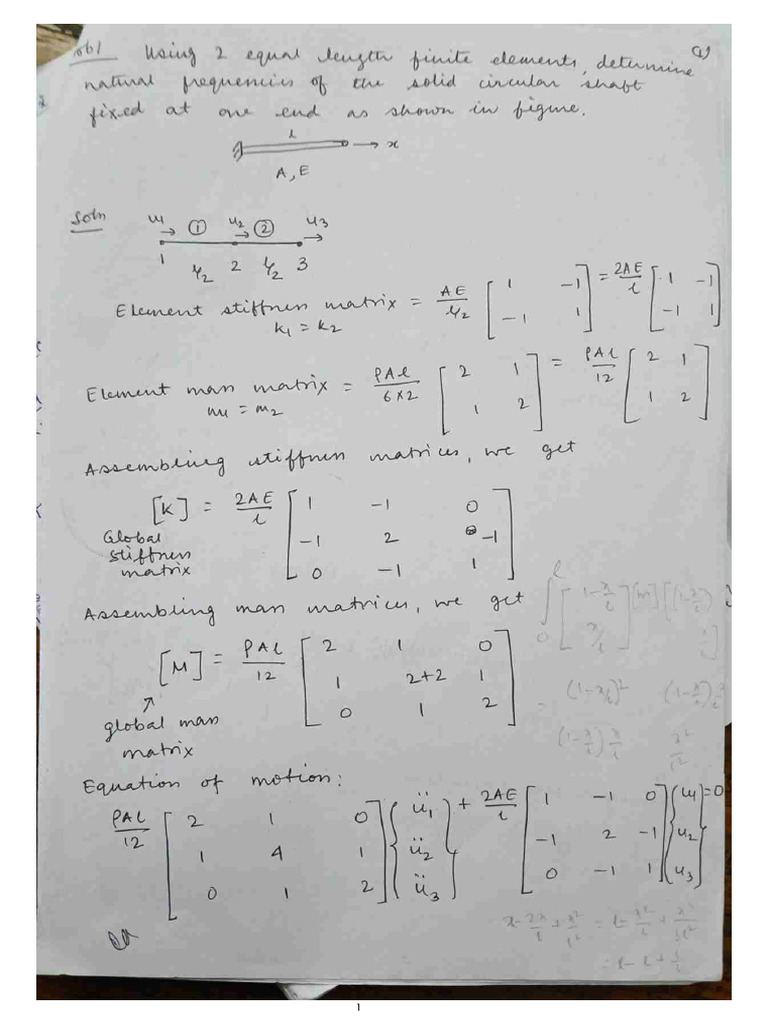 Using 2 equal length finite elements, determine (1)
natural frequencies of the solid circular shaft
fixed at one end as shown in figure.
l
→ x
A, E
Soln u1 → ① u2 → ② u3 →
1 l/2 2 l/2 3
Element stiffness matrix = AE/(l/2) [1 -1; -1 1] = 2AE/l [1 -1; -1 1]
k1 = k2
Element mass matrix = ρAl/(6×2) [2 1; 1 2] = ρAl/12 [2 1; 1 2]
m1 = m2
Assembling stiffness matrices, we get
[K] = 2AE/l [1 -1 0; -1 2 -1; 0 -1 1]
Global
stiffness
matrix
Assembling mass matrices, we get
[M] = ρAl/12 [2 1 0; 1 2+2 1; 0 1 2]
global mass
matrix
Equation of motion:
ρAl/12 [2 1 0; 1 4 1; 0 1 2] {ü1; ü2; ü3} + 2AE/l [1 -1 0; -1 2 -1; 0 -1 1] {u1; u2; u3} = 0
1